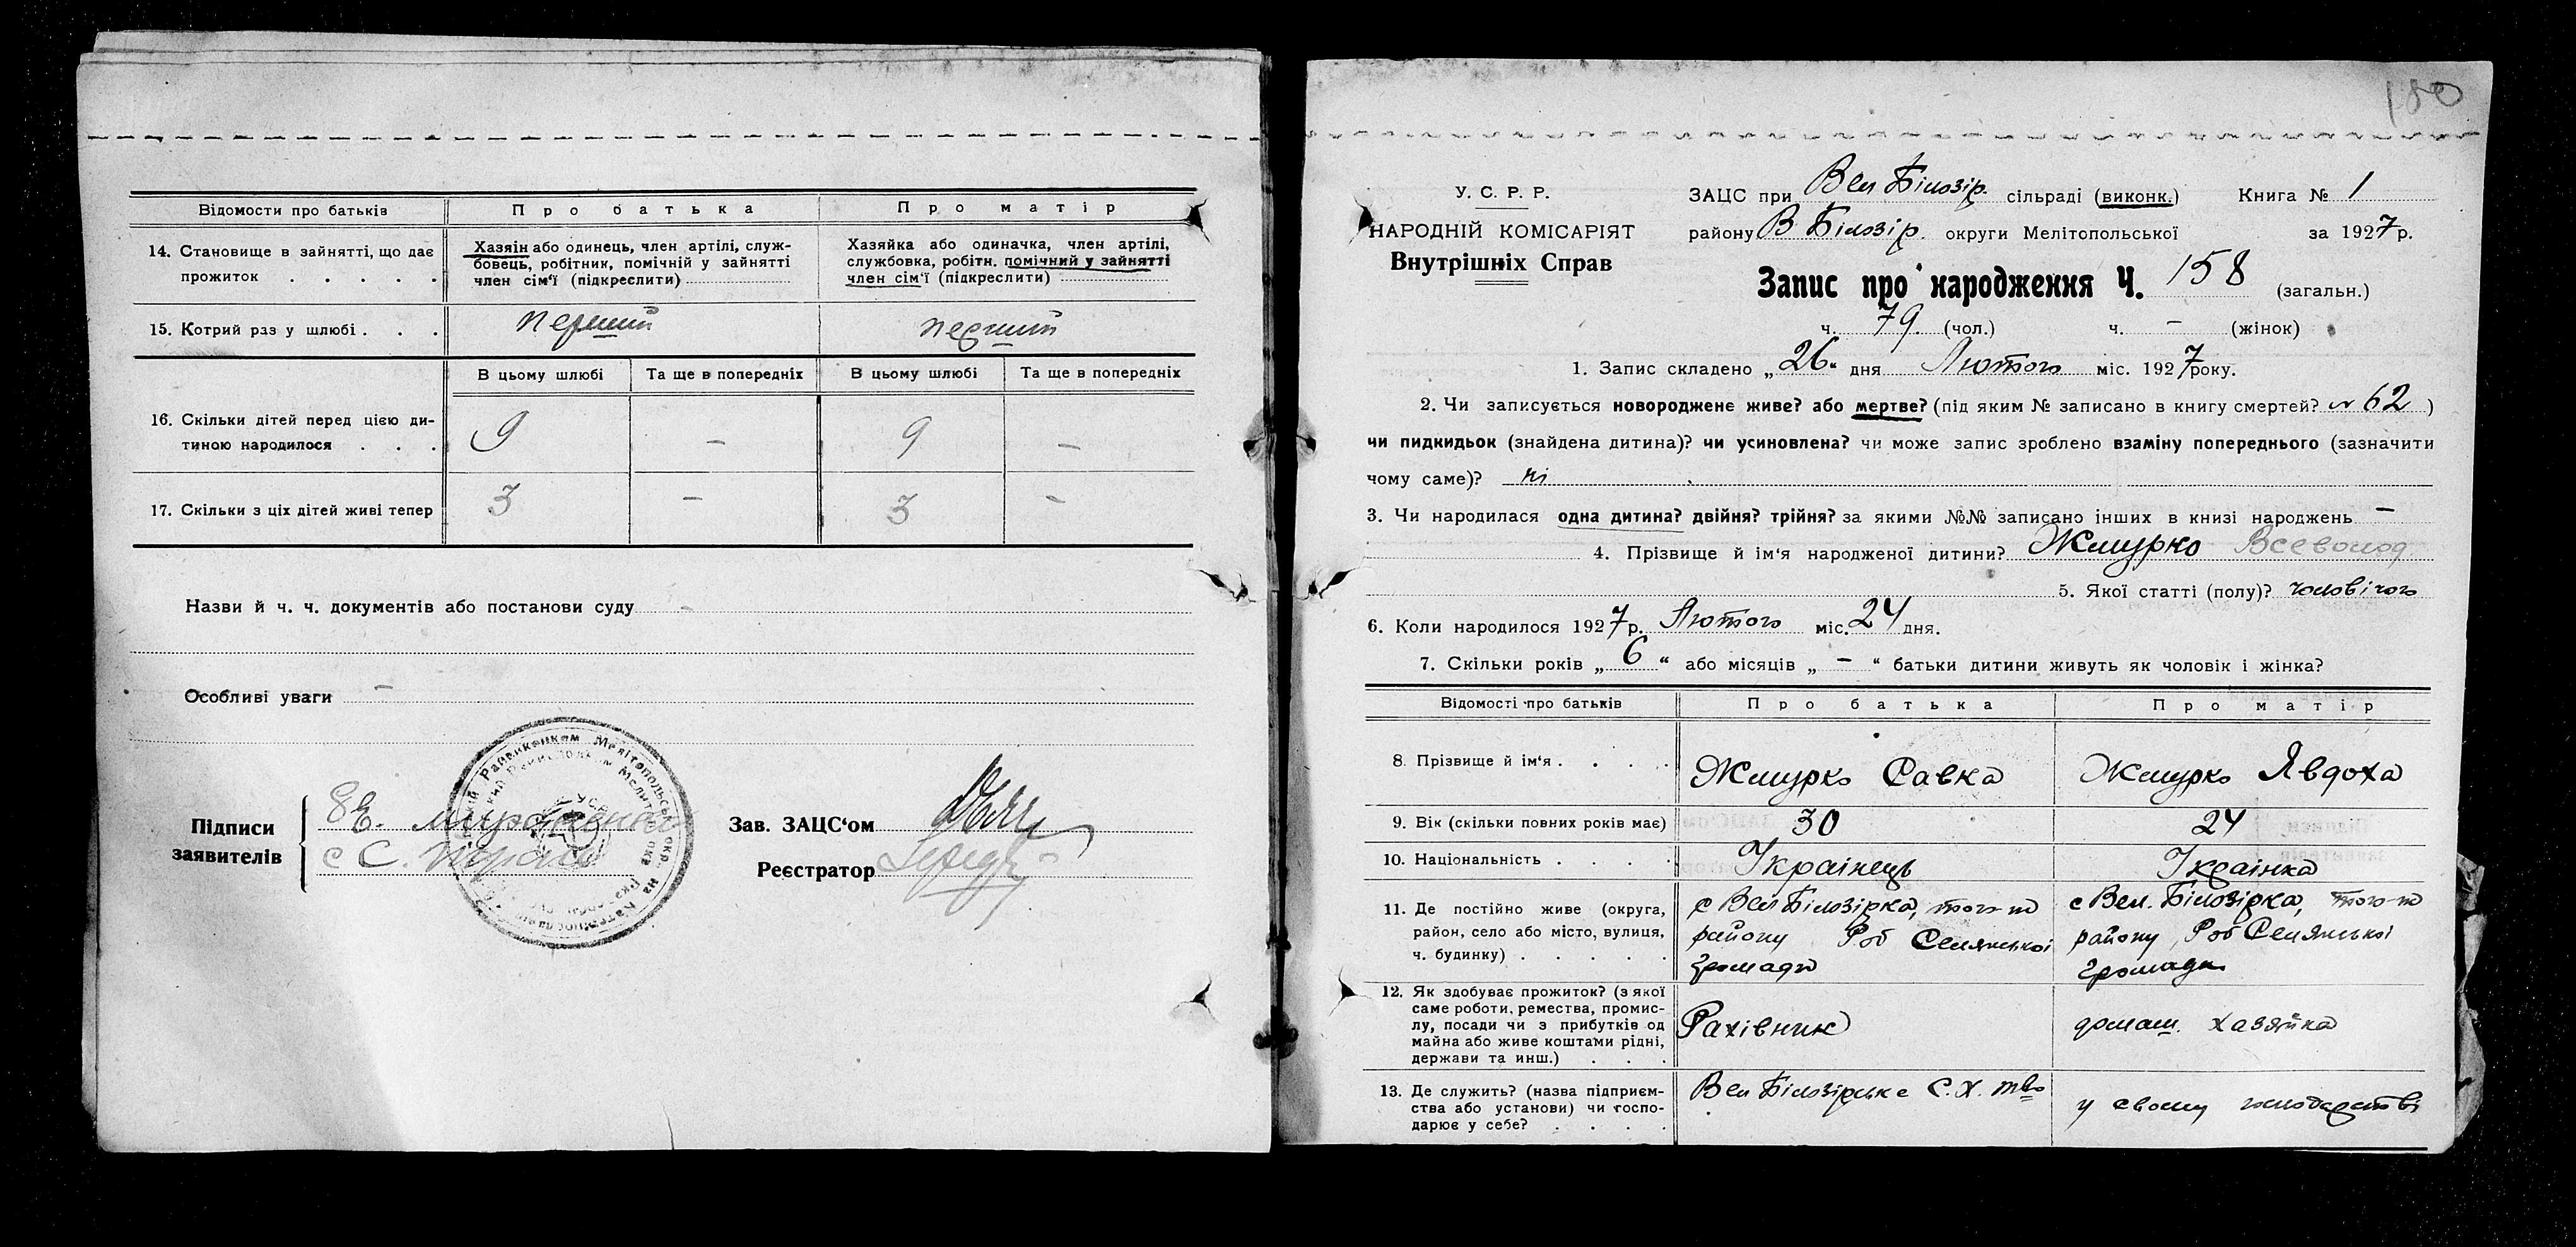 Відомости про батьків
Про батька
Про матір
14. Становище в зайнятті, що дає
прожиток . . . . .
Хазяін або одинець, член артілі, служ-
бовець, робітник, помічній у зайнятті
член сім‘ї (підкреслити)
Хазяйка або одиначка, член артілі,
службовка, робітн. помічний у зайнятті
член сім‘ї (підкреслити)
15. Котрий раз у шлюбі . . .
перший
перший
В цьому шлюбі
Та ще в попередніх
В цьому шлюбі
Та ще в попередніх
16. Скільки дітей перед цією ди-
тиною народилося . . .
9 – 9 –
17. Скільки з ціх дітей живі тепер
3 – 3 –
Назви й ч. ч. документів або постанови суду –
Особливі уваги –
Підписи
заявителів
Зав. ЗАЦС‘ом
Реєстратор
180
У. С. Р. Р.
НАРОДНІЙ КОМІСАРІЯТ
Внутрішніх Справ
ЗАЦС при Вел Білозір. сільраді (виконк.) Книга № 1
району В Білозір. округи Мелітопольської за 1927 р.
Запис про народження Ч. 158 (загальн.)
ч. 79. (чол.) ч. – (жінок)
1. Запис складено „26“ дня Лютого міс. 1927 року.
2. Чи записується новороджене живе? або мертве? (під яким № записано в книгу смертей? № 62 )
чи пидкидьок (знайдена дитина)? чи усиновлена? чи може запис зроблено взаміну попереднього (зазначити
чому саме)? ні
3. Чи народилася одна дитина? двійня? трійня? за якими №№ записано інших в книзі народжень –
4. Прізвище й ім‘я народженої дитини? Жмурко Всеволод
5. Якої статті (полу)? чоловічого
6. Коли народилося 1927 р. Лютого міс. 24 дня.
7. Скільки років „ 6 “ або місяців „ – “ батьки дитини живуть як чоловік і жінка?
Відомості про батьків
Про батька
Про матір
8. Прізвище й ім‘я . . . .
Жмурко Савка
Жмурко Явдоха
9. Вік (скільки повних років має)
30
24
10. Національність . . . .
Українець
Українка
11. Де постійно живе (округа,
район, село або місто, вулиця,
ч. будинку) . . . . .
с Вел Білозірка, того-ж
району Роб Селянської
громади
с Вел. Білозірка, того-ж
району, Роб Селянської
громади
12. Як здобуває прожиток? (з якої
саме роботи, ремества, промис-
лу, посади чи з прибутків од
майна або живе коштами рідні,
держави та инш.) . . .
Рахівник
домаш. хазяйка
13. Де служить? (назва підприєм-
ства або установи) чи госпо-
дарює у себе? . . . .
Вел Білозірське С.Х. тво
у своєму господарстві